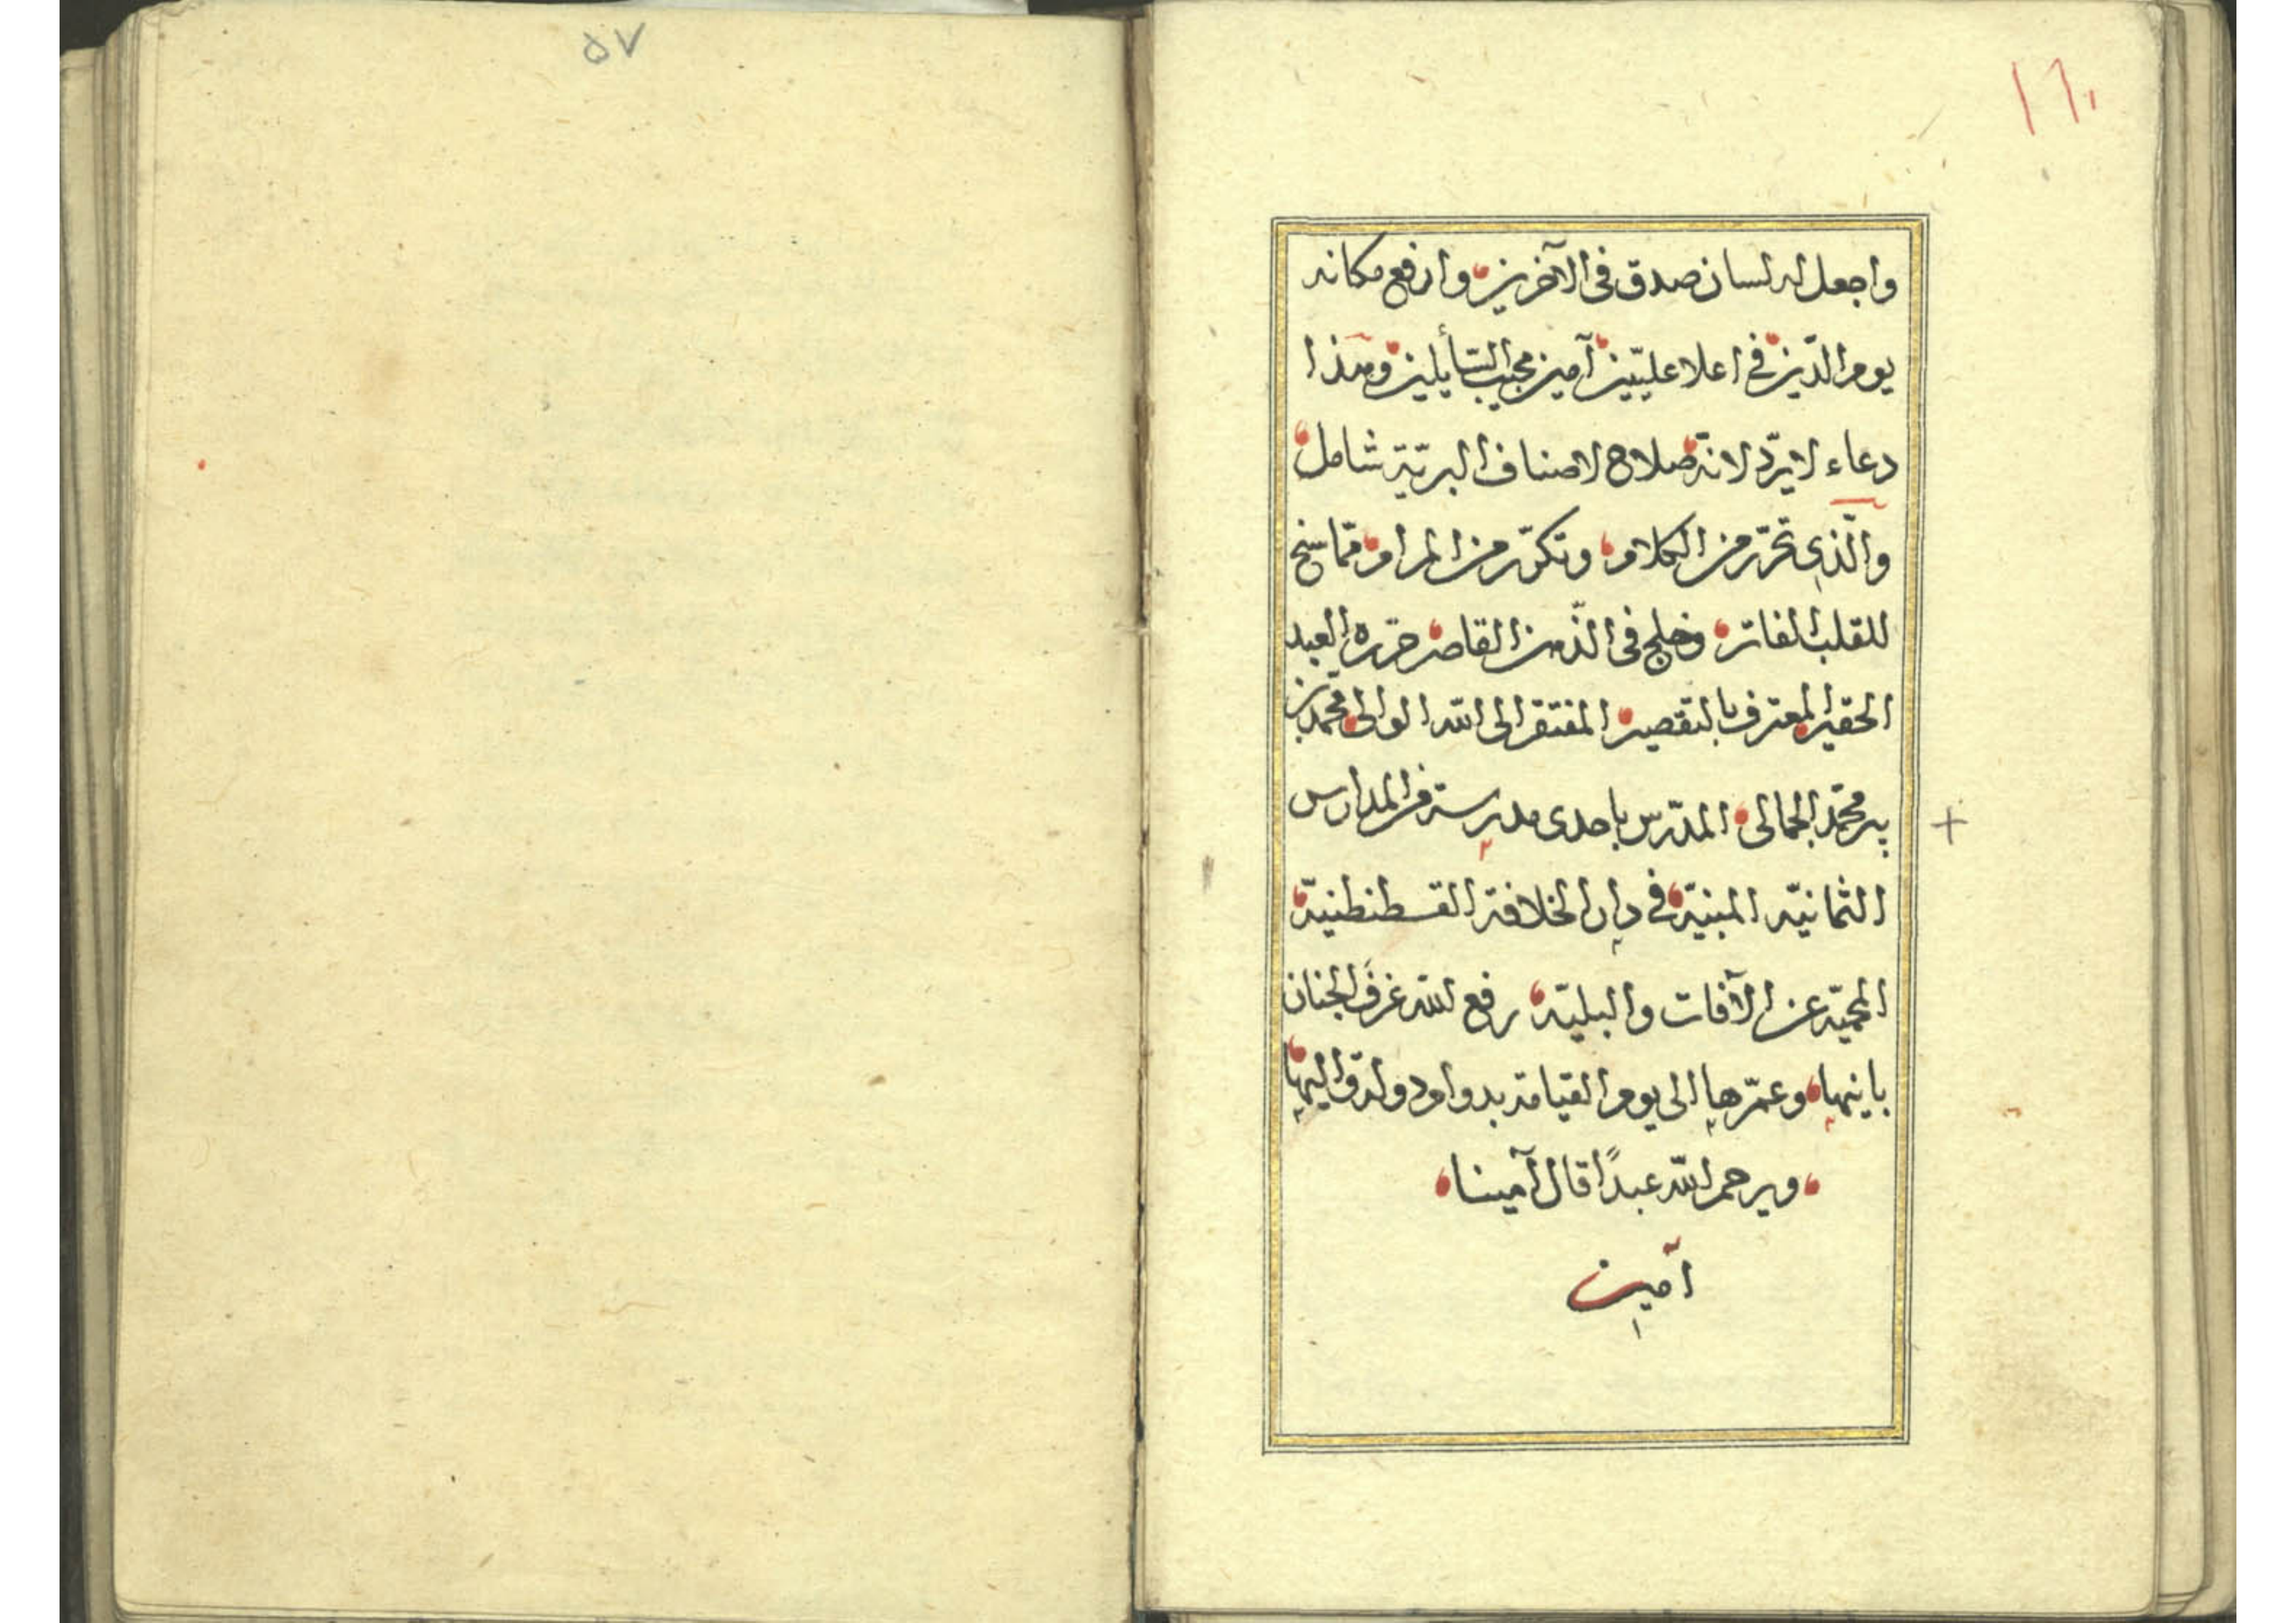 ١٦٠
واجعل له لسان صدق في الآخرين وارفع مكانه
يوم الدّين في اعلا عليّين آمين مجيب السّأيلين وهذا
دعاء لا يردّ لانّه صلاح لاصناف البريّة شامل
والّذي تحرّر من الكلام وتكرّر من المرام ممّا سنح
للقلب الفاتر وخلج في الذّهن القاصر حرّره العبد
الحقير المعترف بالتقصير المفتقر الى الله الوالى محمّد بن
پير محمّد الجمالى المدّرس باحدى مدرسة من المدارس
الثمانيّه المبنيّة في دار الخلافة القسطنطنيّة
المحميّه عن الآفات والبليّه رفع الله غرفَ الجنان
بانيها وعمّرها الى يوم القيامة بدوام دولة واليها
ويرحم الله عبدًا قال آمينا
آمين
٥٧